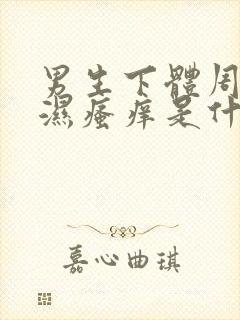 男生下體周
濕瘙痒是什
嘉心曲琪